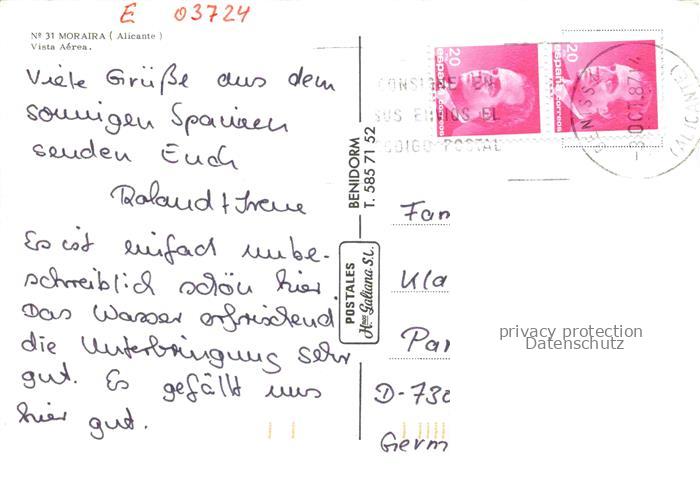 E 03724
Nº 31 MORAIRA (Alicante)
Vista Aérea.
Viele Grüße aus dem
sonnigen Spanien
senden Euch
Roland + Irene
Es ist einfach unbe-
schreiblich schön hier.
Das Wasser erfrischend,
die Unterbringung sehr
gut. Es gefällt uns
hier gut.
BENIDORM
T. 585 71 52
POSTALES
Hnos Galiana S.L.
20
España correos
20
España correos
CONSIGNE EN
SUS ENVIOS EL
CODIGO POSTAL
-8 OCT. 87
(ALICANTE)
Fam
Kla
Par
D-730
Germ
privacy protection
Datenschutz